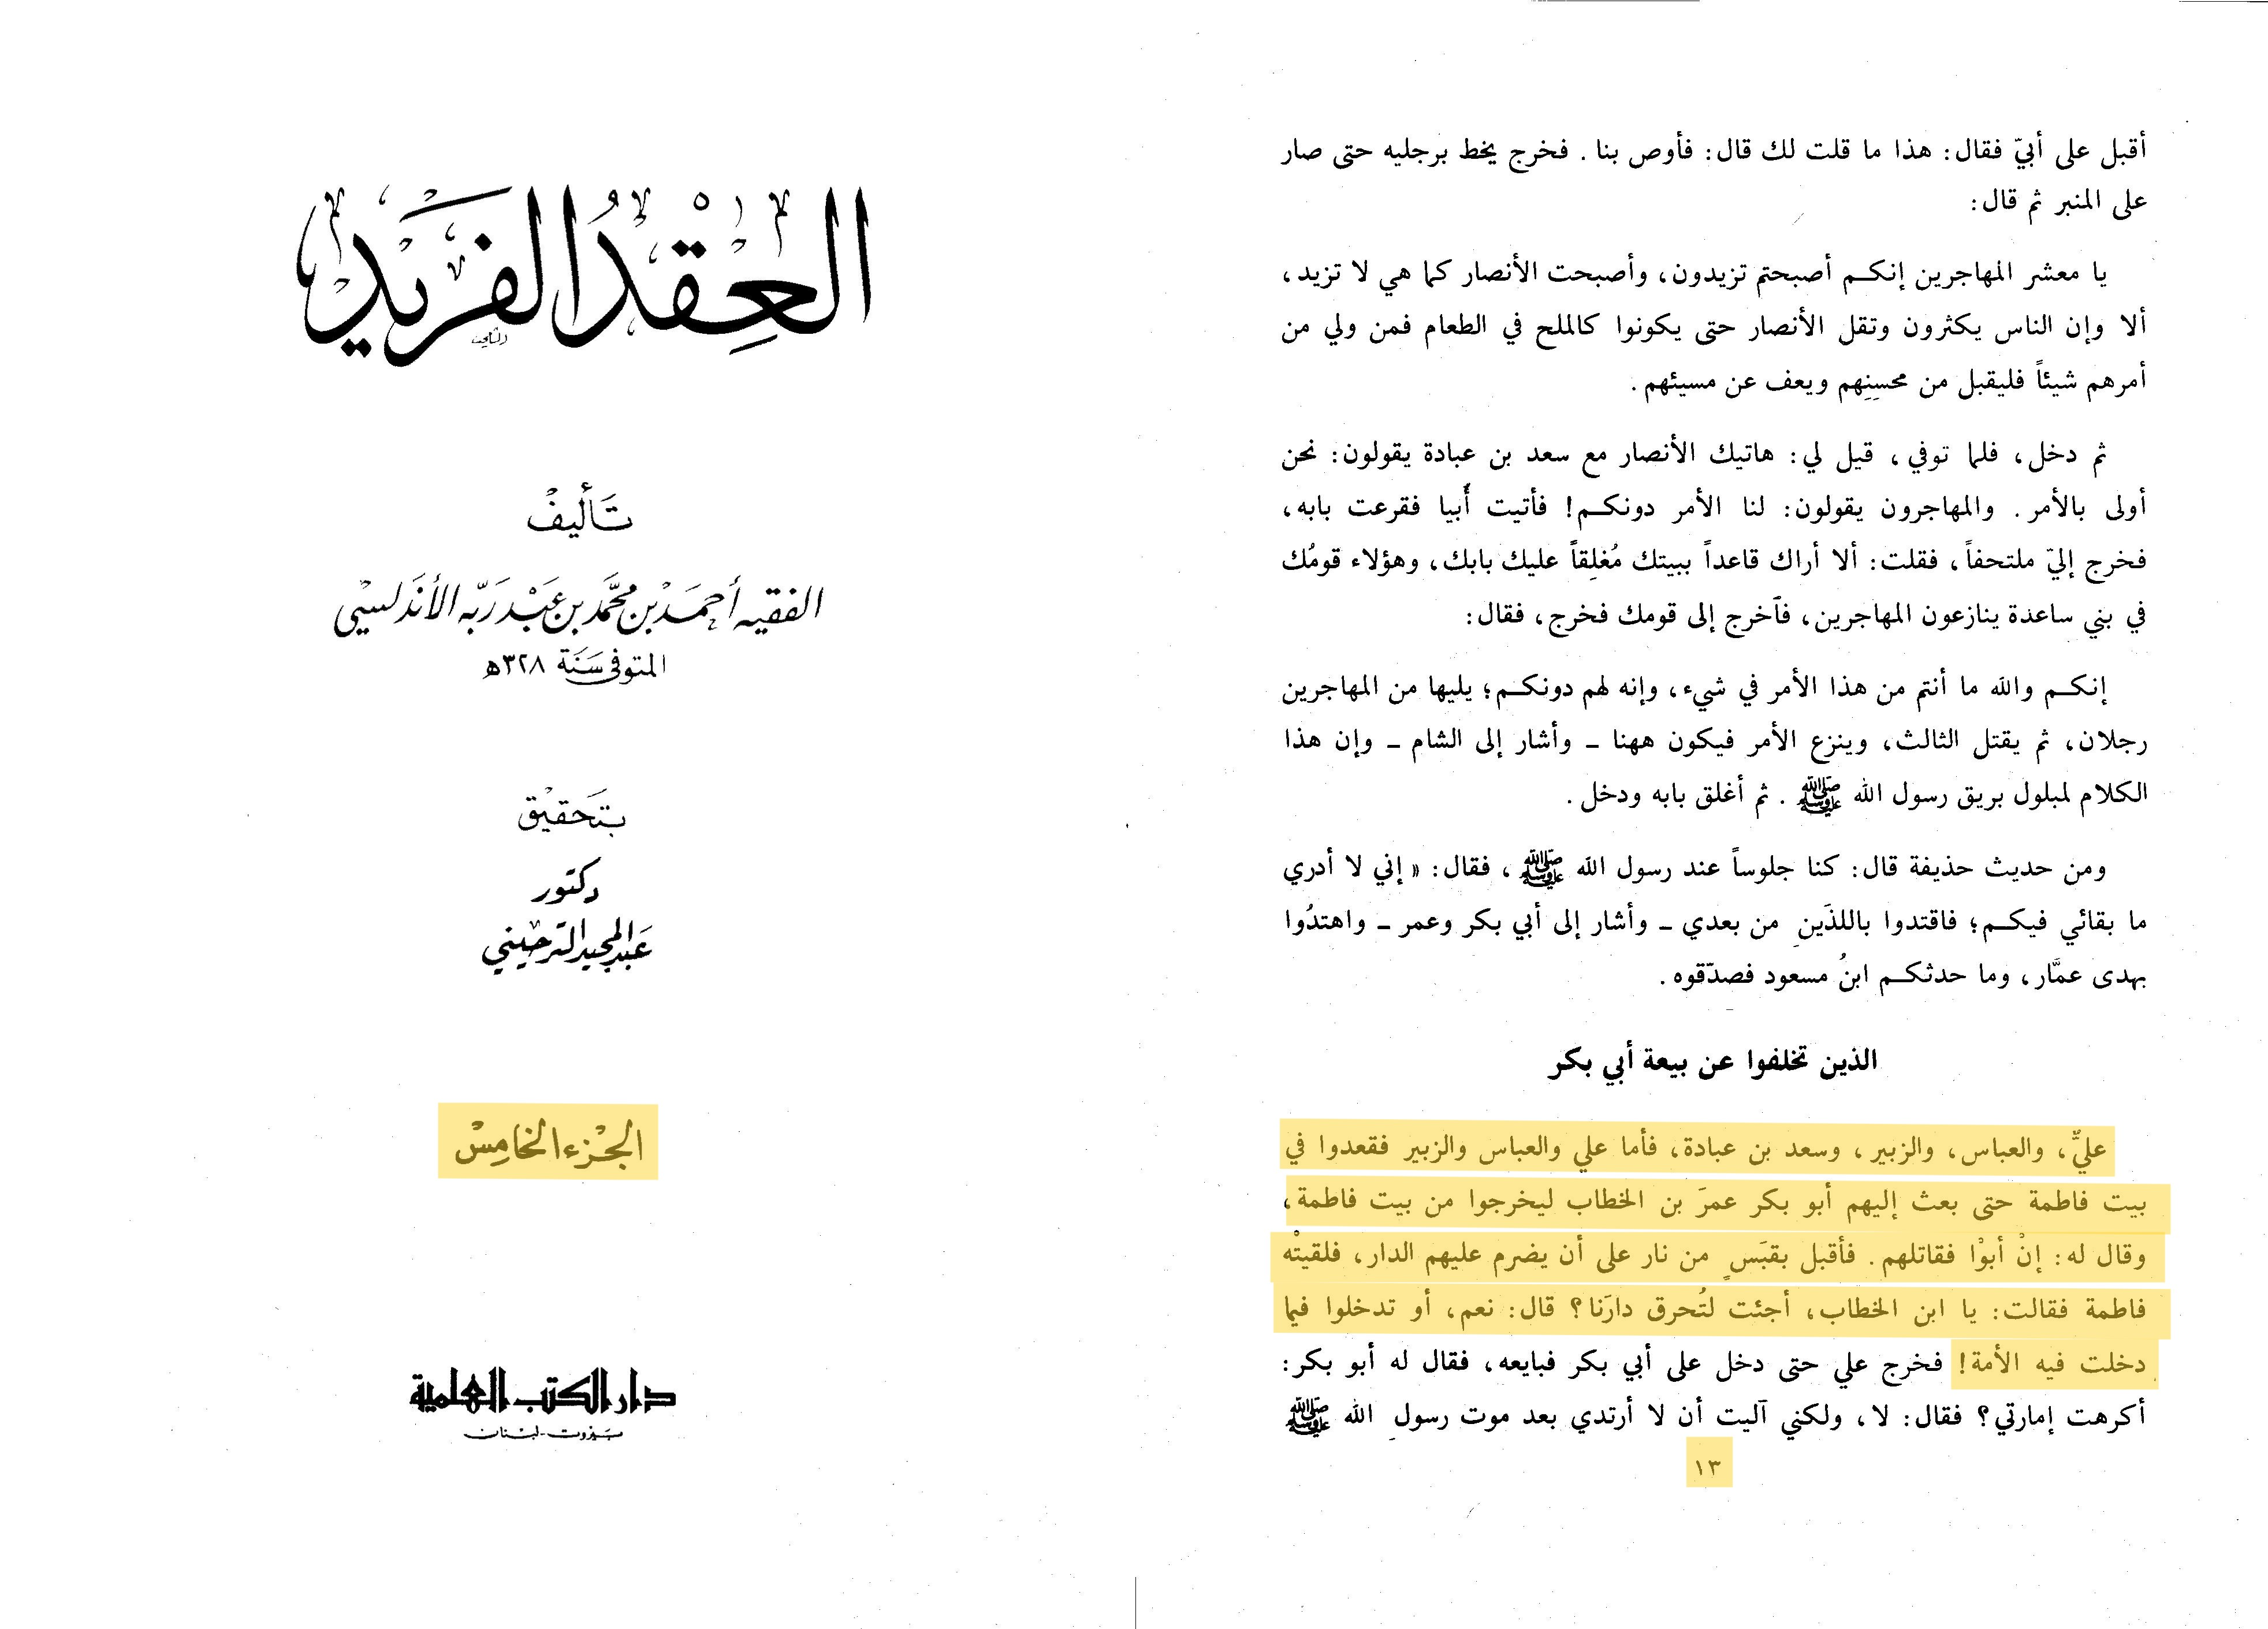 أقبل على أبيّ فقال: هذا ما قلت لك قال: فأوص بنا. فخرج يخط برجليه حتى صار
على المنبر ثم قال:
يا معشر المهاجرين إنكم أصبحتم تزيدون، وأصبحت الأنصار كما هي لا تزيد،
ألا وإن الناس يكثرون وتقل الأنصار حتى يكونوا كالملح في الطعام فمن ولي من
أمرهم شيئاً فليقبل من محسنِهم ويعف عن مسيئهم.
ثم دخل، فلما توفي، قيل لي: هاتيك الأنصار مع سعد بن عبادة يقولون: نحن
أولى بالأمر. والمهاجرون يقولون: لنا الأمر دونكم! فأتيت أُبيا فقرعت بابه،
فخرج إليّ ملتحفاً، فقلت: ألا أراك قاعداً ببيتك مُغلِقاً عليك بابك، وهؤلاء قومُك
في بني ساعدة ينازعون المهاجرين، فآخرج إلى قومك فخرج، فقال:
إنكم والله ما أنتم من هذا الأمر في شيء، وإنه لهم دونكم؛ يليها من المهاجرين
رجلان، ثم يقتل الثالث، وينزع الأمر فيكون ههنا - وأشار إلى الشام - وإن هذا
الكلام لمبلول بريق رسول الله ﷺ. ثم أغلق بابه ودخل.
ومن حديث حذيفة قال: كنا جلوساً عند رسول الله ﷺ، فقال: « إني لا أدري
ما بقائي فيكم؛ فاقتدوا باللذَينِ من بعدي - وأشار إلى أبي بكر وعمر - واهتدُوا
بهدى عمَّار، وما حدثكم ابنُ مسعود فصدّقوه.
الذين تخلفوا عن بيعة أبي بكر
عليّ، والعباس، والزبير، وسعد بن عبادة، فأما علي والعباس والزبير فقعدوا في
بيت فاطمة حتى بعث إليهم أبو بكر عمرَ بن الخطاب ليخرجوا من بيت فاطمة،
وقال له: إنْ أبوْا فقاتلهم. فأقبل بقبَسٍ من نار على أن يضرم عليهم الدار، فلقيتْه
فاطمة فقالت: يا ابن الخطاب، أجئت لتُحرق دارَنا؟ قال: نعم، أو تدخلوا فيما
دخلت فيه الأمة! فخرج علي حتى دخل على أبي بكر فبايعه، فقال له أبو بكر:
أكرهت إمارتي؟ فقال: لا، ولكني آليت أن لا أرتدي بعد موت رسولِ الله ﷺ
١٣
العِقْدُ الفَرِيد
تَأليفْ
الفقيه أحمَد بْن محمَّد بن عَبْد رَبّه الأندَلسيْ
المتوفى سَنَة ٣٢٨ هـ
بتَحقيْق
دكتور
عَبد المجيد الترحيْني
الجُزء الخامِسْ
دار الكتب العلمية
بَيروت - لبْنان